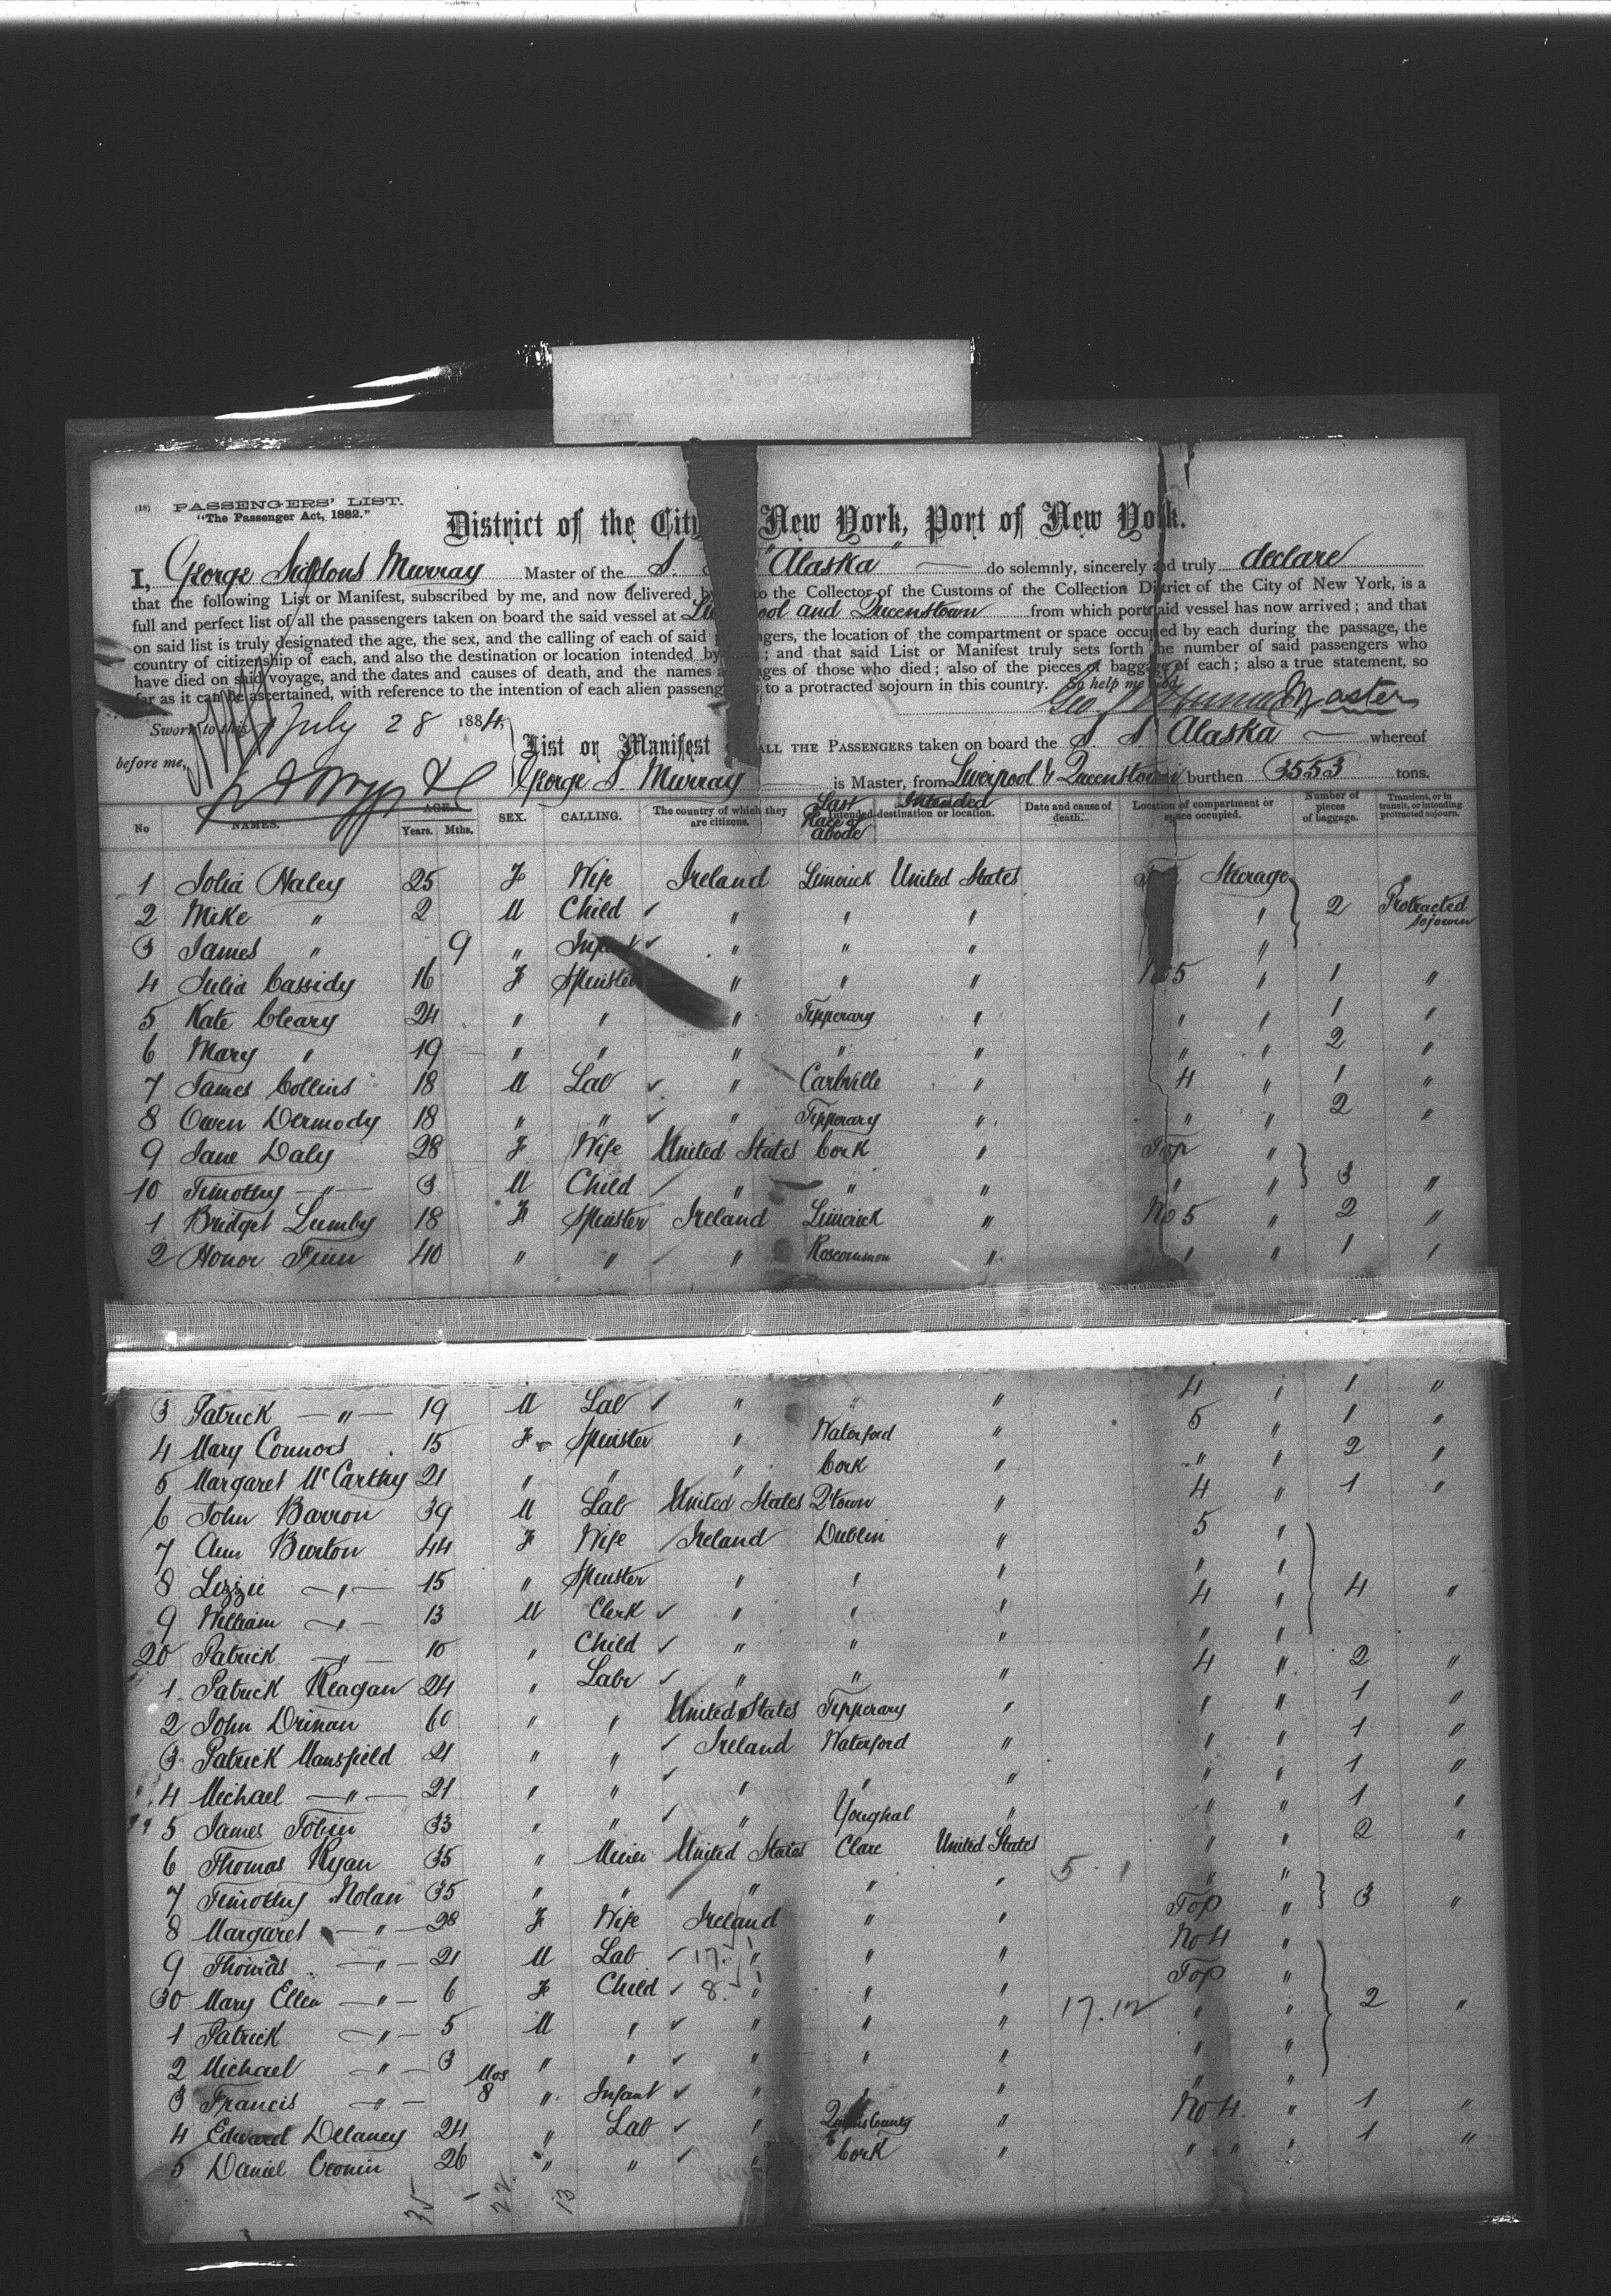 (18) PASSENGERS' LIST.
"The Passenger Act, 1882."
District of the City New York, Port of New York.
I, George Siddons Murray Master of the S. "Alaska" do solemnly, sincerely and truly declare
that the following List or Manifest, subscribed by me, and now delivered to the Collector of the Customs of the Collection District of the City of New York, is a
full and perfect list of all the passengers taken on board the said vessel at Liverpool and Queenstown from which port said vessel has now arrived; and that
on said list is truly designated the age, the sex, and the calling of each of said passengers, the location of the compartment or space occupied by each during the passage, the
country of citizenship of each, and also the destination or location intended by ; and that said List or Manifest truly sets forth the number of said passengers who
have died on said voyage, and the dates and causes of death, and the names ages of those who died; also of the pieces of baggage of each; also a true statement, so
far as it can be ascertained, with reference to the intention of each alien passenger to a protracted sojourn in this country. So help me God.
Geo. S Murray Master
Sworn to this July 28 1884
before me,
List or Manifest ALL THE PASSENGERS taken on board the S. S Alaska whereof
George S. Murray is Master, from Liverpool & Queenstown burthen 3553 tons.
No NAMES. AGE. Years. Mths. SEX. CALLING. The country of which they are citizens. Last Place of Abode Intended Intended destination or location. Date and cause of death. Location of compartment or space occupied. Number of pieces of baggage. Transient, or in transit, or intending protracted sojourn.
1 Julia Haley 25 F Wife Ireland Limerick United States Steerage
2 Mike " 2 M Child ✓ " " " " 2 Protracted sojourn
3 James " 9 " Infant ✓ " " " "
4 Julia Cassidy 16 F Spinster " " " No 5 " 1 "
5 Kate Cleary 24 " " " Tipperary " " " 1 "
6 Mary " 19 " " " " " " " 2 "
7 James Collins 18 M Lab ✓ " " 4 " 1 "
8 Owen Dermody 18 " " ✓ " Tipperary " " " 2 "
9 Jane Daly 28 F Wife United States Cork " Top "
10 Timothy " 3 M Child ✓ " " " " " 3 "
1 Bridget Lumby 18 F Spinster Ireland Limerick " No 5 " 2 "
2 Honor Finn 40 " " ✓ " Roscommon " " " 1 "
3 Patrick " 19 M Lab ✓ " " " 4 " 1 "
4 Mary Connors 15 F Spinster " Waterford " 5 " 1 "
5 Margaret McCarthy 21 " " " Cork " " " 2 "
6 John Barron 39 M Lab United States Q'town " 4 " 1 "
7 Ann Burton 44 F Wife ✓ Ireland Dublin " 5 "
8 Lizzie " 15 " Spinster " " " " "
9 William " 13 M Clerk ✓ " " " 4 " 4 "
20 Patrick " 10 " Child ✓ " " " " "
1 Patrick Reagan 24 " Labr ✓ " " " 4 " 2 "
2 John Drinan 60 " " United States Tipperary " " " 1 "
3 Patrick Mansfield 21 " " ✓ Ireland Waterford " " " 1 "
4 Michael " 21 " " ✓ " " " " " 1 "
5 James Tobin 33 " " ✓ " Youghal " " " 1 "
6 Thomas Ryan 35 " Miner United States Clare United States " " 2 "
7 Timothy Nolan 35 " " " " " 5. 1 " "
8 Margaret " 28 F Wife Ireland " " Top " 3 "
9 Thomas " 21 M Lab ✓ 17. " " " No 4 "
30 Mary Ellen " 6 F Child ✓ 8. " " " Top "
1 Patrick " 5 M " ✓ " " " 17.12 " " 2 "
2 Michael " 3 " " ✓ " " " " "
3 Francis " Mos 8 " Infant ✓ " " " " "
4 Edward Delaney 24 " Lab ✓ " Queens County " No 4. " 1 "
5 Daniel Cronin 26 " " ✓ " Cork " " " 1 "
35 1 22 13